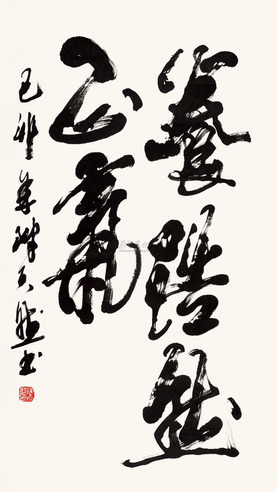 養浩然
正氣
己卯書